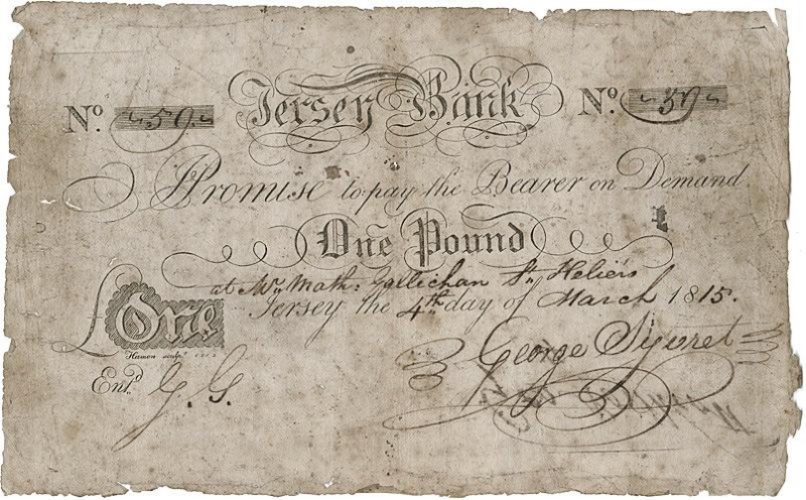 Nº. 59. Jersey Bank Nº. 59
I Promise to pay the Bearer on Demand
One Pound
at Mr. Math: Gallichan St. Heliers
Jersey the 4th day of March 1815.
£ One
George Syvret
Ent.d G. G.